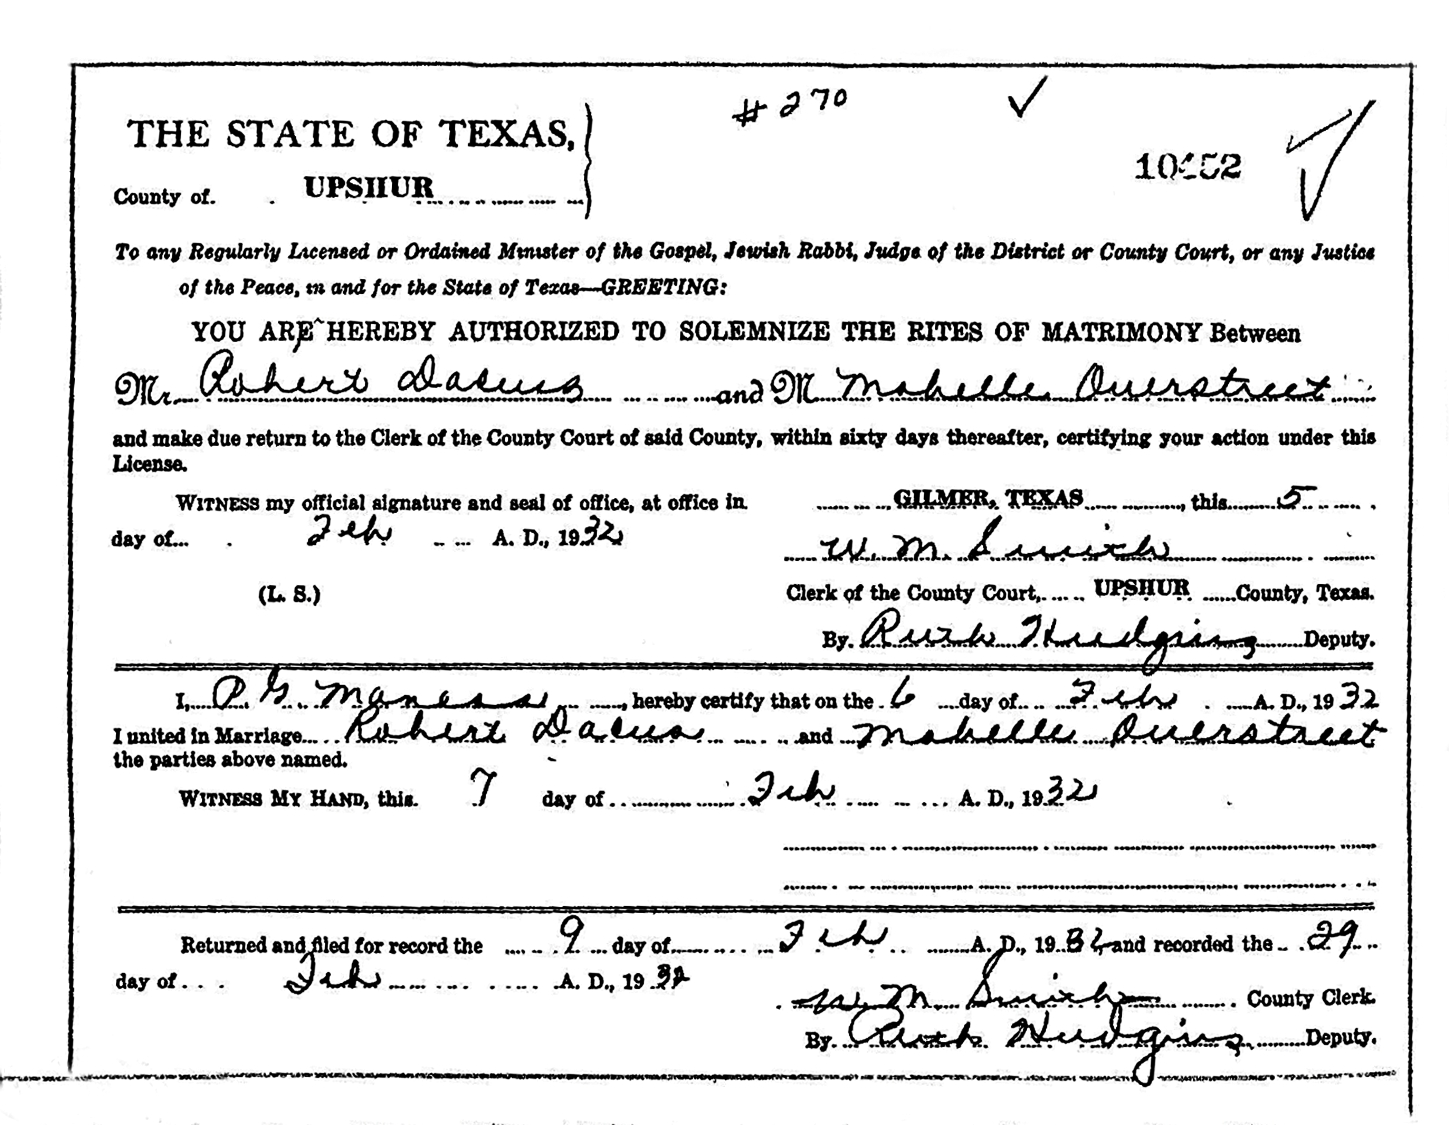 #270
THE STATE OF TEXAS,
County of. UPSHUR
To any Regularly Licensed or Ordained Minister of the Gospel, Jewish Rabbi, Judge of the District or County Court, or any Justice
of the Peace, in and for the State of Texas—GREETING:
YOU ARE HEREBY AUTHORIZED TO SOLEMNIZE THE RITES OF MATRIMONY Between
Mr. Robert Dacus and M Mabelle Overstreet
and make due return to the Clerk of the County Court of said County, within sixty days thereafter, certifying your action under this
License.
WITNESS my official signature and seal of office, at office in GILMER, TEXAS, this 5
day of Feb A. D., 1932
W. M. Smith
(L. S.) Clerk of the County Court, UPSHUR County, Texas.
By Ruth Hudgins Deputy.
I, P. G. Maness, hereby certify that on the 6 day of Feb A. D., 1932
I united in Marriage Robert Dacus and Mabelle Overstreet
the parties above named.
WITNESS MY HAND, this 7 day of Feb A. D., 1932
Returned and filed for record the 9 day of Feb A. D., 1932 and recorded the 29
day of Feb A. D., 1932
W. M. Smith County Clerk.
By Ruth Hudgins Deputy.